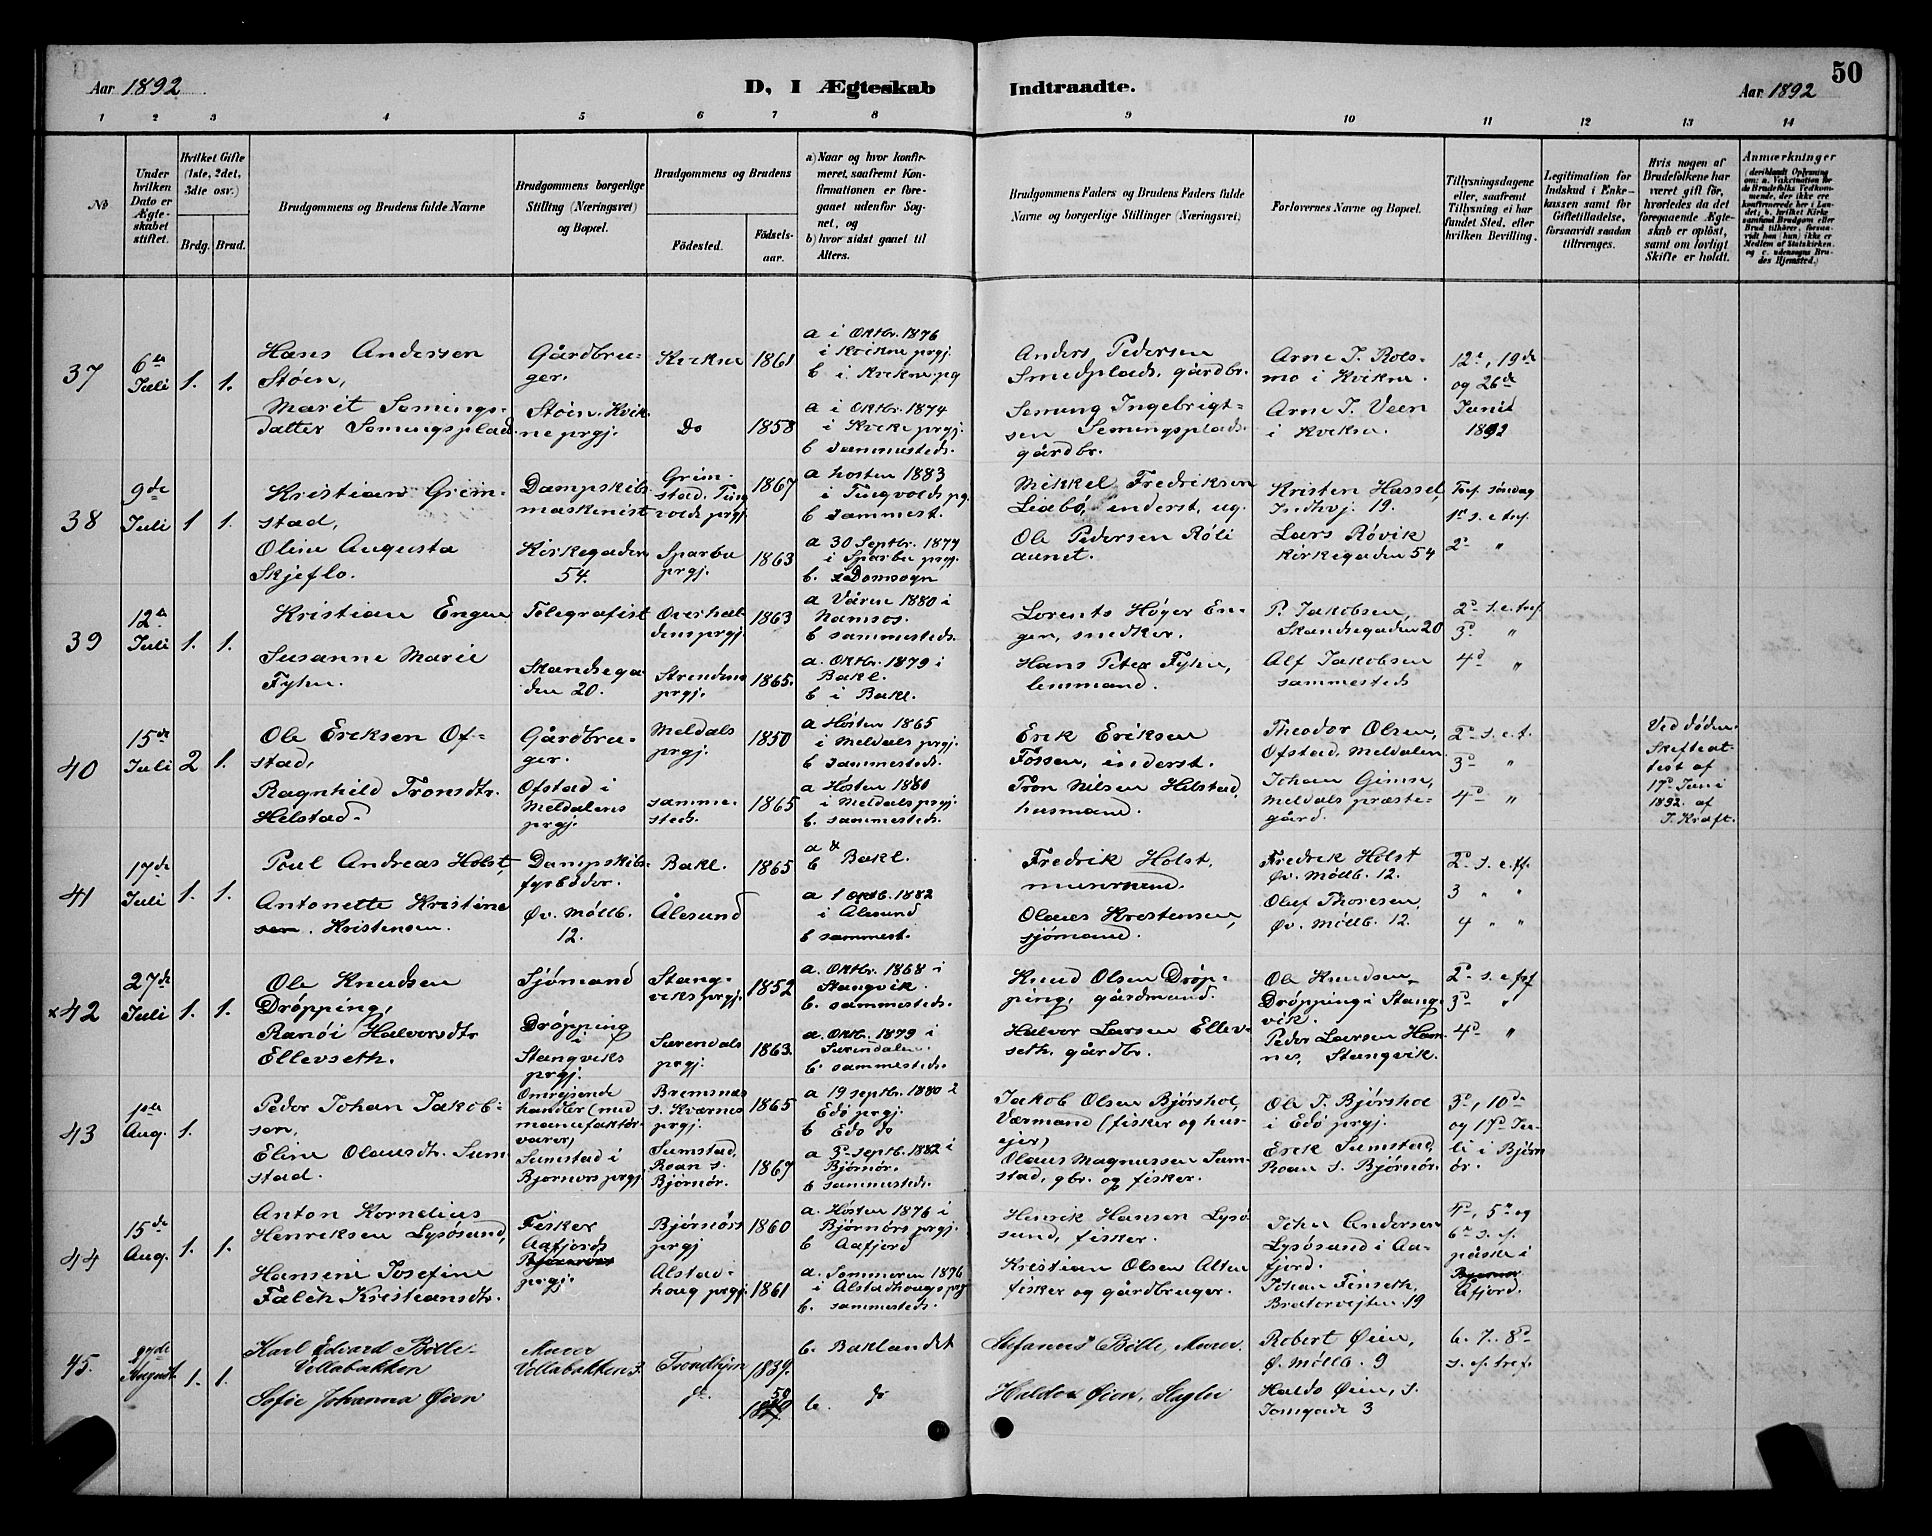 Aar 1892
D, I Ægteskab
Indtraadte.
Aar 1892
50
1 2 3 4 5 6 7 8 9 10 11 12 13 14
No
Under
hvilken
Dato er
Ægte-
skabet
stiftet.
Hvilket Gifte
(1ste, 2det,
3die osv.)
Brdg. Brud.
Brudgommens og Brudens fulde Navne
Brudgommens borgerlige
Stilling (Næringsvei)
og Bopæl.
Brudgommens og Brudens
Fødested.
Fødsels-
aar.
a) Naar og hvor konfir-
meret, saafremt Kon-
firmationen er fore-
gaaet udenfor Sog-
net, og
b) hvor sidst gaaet til
Alters.
Brudgommens Faders og Brudens Faders fulde
Navne og borgerlige Stillinger (Næringsvei)
Forlovernes Navne og Bopæl.
Tillysningsdagene
eller, saafremt
Tillysning ei har
fundet Sted, efter
hvilken Bevilling.
Legitimation for
Indskud i Enke-
kassen samt for
Giftetilladelse,
forsaavidt saadan
tiltrænges.
Hvis nogen af
Brudefolkene har
været gift før,
hvorledes da det
foregaaende Ægte-
skab er opløst,
samt om lovligt
Skifte er holdt.
Anmærkninger
(deriblandt Oplysning
om: a. Vakcination for
de Brudefolks Vedkom-
mende, der ikke ere
konfirmerede her i Lan-
det; b. hvilket Kirke-
samfund Brudgom eller
Brud tilhører, forsaa-
vidt han (hun) ikke er
Medlem af Statskirken.
og c. udensogns Bru-
des Hjemsted.)
37
6te
Juli
1. 1.
Hans Andersen
Støen,
Marit Semings-
datter Semingsplads
Gårdbru-
ger.
Støen. Kvik-
ne prgj.
Kvikne
Do
1861
1858
a i Oktbr. 1876
i Kvikne prgj.
b. i Kvikne pg
a i Oktbr. 1874
i Kvikne prgj.
b sammesteds.
Anders Pedersen
Smedplads, gårdbr.
Seming Ingebrigt-
sen Semingsplads.
gårdbr.
Arne J. Rols-
mo i Kvikne.
Arne J. Veen
i Kvikne.
12te, 19de
og 26de
Juni
1892
38
9de
Juli
1 1.
Kristian Grim-
stad,
Oline Augusta
Skjeflo.
Dampskibs-
maskinist
Kirkegaden
54.
Grim-
stad. Ting
volds prgj.
Sparbu
prgj.
1867
1863
a hosten 1883
i Tingvolds pg.
b sammest.
a 30 Septbr. 1877
i Sparbu prgj.
b. Domsogn
Mikkel Fredriksen
Liabö, inderst, ug.
Ole Pedersen Röli
aunet.
Kristen Hassel,
Indhvj. 19.
Lars Rövik
Kirkegaden 54
Tref. søndag
1s s. e. tref.
2d "
39
12te
Juli
1. 1.
Kristian Engen
Susanne Marie
Fyhn.
Telegrafist
Skandsega-
den 20.
Overhal-
dens prgj.
Strindens
prgj.
1863
1865.
a Våren 1880 i
Namsos.
b sammesteds.
a. Oktbr. 1879 i
Bakl.
b i Bakl.
Lorents Höyer En-
gen, snedker.
Hans Peter Fyhn,
lensmand.
P. Jakobsen,
Skandsegaden 20
Alf Jakobsen
sammesteds
2d s. e. tref
3d "
4d "
40
15de
Juli
2 1.
Ole Eriksen Of-
stad,
Ragnhild Tronsdtr.
Helstad.
Gårdbru-
ger.
Ofstad i
Meldalens
prgj.
Meldals
prgj.
samme-
steds.
1850
1865
a Hösten 1865
i Meldals prgj.
b sammesteds.
a Hösten 1880
i Meldals prgj.
b. sammesteds.
Erik Eriksen
Fossen, inderst.
Tron Nilsen Helstad,
husmand.
Theodor Olsen,
Ofstad, Meldalen.
Johan Gimse,
Meldals præste-
gård.
2d s. e. t.
3d "
4d "
Ved døden.
Skifteat-
test af
17d Juni
1892. af
T. Kraft.
41
17de
Juli
1. 1.
Poul Andreas Holst,
Antonette Kristine
Kristensen.
Dampskibs-
fyrböder.
Öv. Möllb.
12.
Bakl.
Ålesund
1865
1865
a &
b Bakl.
a 1 Oktb. 1882
i Ålesund
b sammest.
Fredrik Holst,
murersvend.
Olaus Kristensen,
sjømand.
Fredrik Holst
Öv. Möllb. 12.
Oluf Thoresen,
Öv. Möllb. 12.
2d s. e. tf.
3 " "
4 " "
x42
27de
Juli
1. 1.
Ole Knudsen
Dröpping,
Ranöi Halvorsdtr
Ellevseth.
Sjömand
Dröpping
i
Stangviks
prgj.
Stang-
viks prgj.
Surendals
prgj.
1852
1863.
a. Oktbr. 1868 i
Stangvik.
b. sammesteds.
a. Oktbr. 1879 i
Surendalen.
b sammesteds.
Knud Olsen Dröp-
ping, gårdmand.
Halvor Larsen Ellev-
seth. gårdbr.
Ole Knudsen
Dröpping i Stang-
vik.
Peder Larsen Ham-
nes, Stangvik.
2d s. e.
3d "
4d "
43
1ste
Aug.
1.
Peder Johan Jakob-
sen,
Eline Olausdtr. Sum-
stad.
Omrejsende
handler (med
manufaktur-
varer)
Sumstad i
Bjørnørs prgj.
Bremsnæs
s. Kværnes
prgj.
Sumstad,
Roan s.
Bjørnør.
1865
1867
a 19 septbr. 1880 i
Edø prgj.
b Edø do
a 3d septb. 1882 i
Bjørnør.
b sammesteds.
Jakob Olsen Bjørshol,
Værmand (fisker og hus-
ejer)
Olaus Magnussen Sum-
stad, gbr. og fisker.
Ole J. Bjørshol
i Edø prgj.
Erik Sumstad,
Roan s. Bjørnør.
3d, 10de
og 17d Ju-
li i Bjørn
ør.
44
15de
Aug.
1. 1.
Anton Kornelius
Henriksen Lysøsund,
Hansine Josefine
Falch Kristiansdtr.
Fisker
Aafjords
Bjørnørs
prgj.
Bjørnørs
prgj
Alstad-
houg prgj.
1860
1861
a. Hösten 1876 i
Bjørnørs prgj.
b Aafjord
a. Sommeren 1876
i Alstadhougs prgj
b. sammesteds.
Henrik Hansen Lysø
sund, fisker.
Kristian Olsen Alten
fisker og gårdbruger.
John Andersen
Lysøsund i Aa-
fjord.
Johan Finseth,
Bratørvejten 19
4d, 5d og
6d s. e.
påske i
Bjørnør
Åfjord.
45.
August
1. 1.
Karl Edvard Bölle-
Vollabakken
Sofie Johanna Øien
Murer
Vollabakken 3.
Trondhjem
do.
1839.
59
b. Baklandet
b. do
Stefanus Bölle, Murer.
Haldo Øien, Slagter
Robert Øien,
Ø. Möllb. 9
Haldo Øien, s.
Tomgade 3
6. 7. 8d
s. ef. tref.